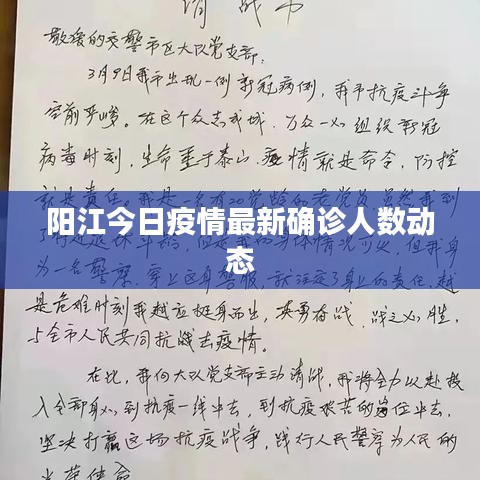 请战书
敬爱的交警市区大队党支部：
3月9日我市出现一例新冠病例，我市抗疫斗争
空前严峻。在这个众志成城，万众一心 组织新冠
病毒时刻，生命重于泰山，疫情就是命令，防控
就是责任。
阳江今日疫情最新确诊人数动
态
为一名人民警察，穿上这身警服，就注定了身上的责任，越
是危难时刻我越应挺身而出，英勇奋战，战之必胜，
与全市人民共同抗战去疫情。
在此，我向大队党支部主动请战，我将全力以赴投
入全部身心到抗疫一线中去，到抗疫艰苦的岗位中去，
坚决打赢这场抗疫战争，践行人民警察为人民的
光荣使命